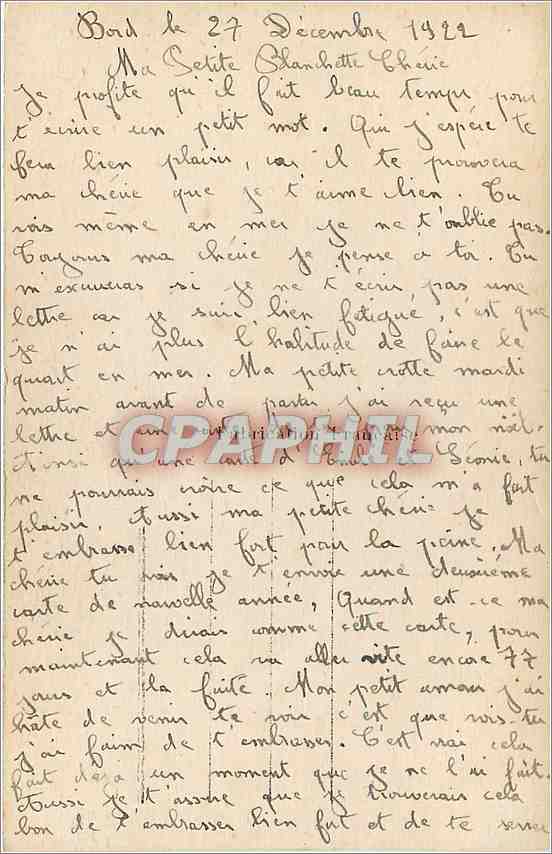 Bord le 27 Décembre 1922
Ma Petite Blanchette Chérie
Je profite qu'il fait beau temps pour
t'écrire un petit mot. Qui j'espère te
fera bien plaisir, car il te prouvera
ma chérie que je t'aime bien. Tu
vois même en mer je ne t'oublie pas.
Toujours ma chérie je pense à toi. Tu
m'excuseras si je ne t'écris pas une
lettre car je suis bien fatigué, c'est que
je n'ai plus l'habitude de faire le
quart en mer. Ma petite crotte mardi
matin avant de partir j'ai reçu une
lettre et une mon noël.
Fabrication Française
CPAPHIL
Ainsi qu'une carte d' Léonie, tu
ne pourrais croire ce que cela m'a fait
plaisir. Aussi ma petite chérie je
t'embrasse bien fort pour la peine. Ma
chérie tu vois je t'envoie une deuxième
carte de nouvelle année, Quand est-ce ma
chérie je dirais comme cette carte, pour
maintenant cela va aller vite encore 77
jours et la fuite. Mon petit amour j'ai
hâte de venir te voir c'est que vois-tu
j'ai faim de t'embrasser. C'est vrai cela
fait déjà un moment que je ne l'ai fait.
Aussi je t'assure que je trouverais cela
bon de t'embrasser bien fort et de te serrer